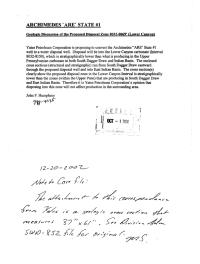 ARCHIMEDES 'ARE' STATE #1
Geologic Discussion of the Proposed Disposal Zone 8032-8602' (Lower Canyon)
Yates Petroleum Corporation is proposing to convert the Archimedes "ARE" State #1
well to a water disposal well. Disposal will be into the Lower Canyon carbonate (Interval
), which is stratigraphically lower than what is producing in the Upper
Pennsylvanian carbonate in both South Dagger Draw and Indian Basin. The enclosed
cross sections (structural and stratigraphic) run from South Dagger Draw eastward
through the proposed disposal well and into East Indian Basin. The cross section(s)
clearly show the proposed disposal zone in the Lower Canyon Interval is stratigraphically
lower than the zones (within the Upper Penn) that are producing in South Dagger Draw
and East Indian Basin. Therefore it is Yates Petroleum Corporation's opinion that
disposing into this zone will not affect production in the surrounding area.
John F. Humphrey
OCT
12-20-2002
Note to Case File:
The attachment to this correspondence
from Yates is a geologic cross section that
measures 37" x 61". See Division Admn.
SWD-852 file for original.